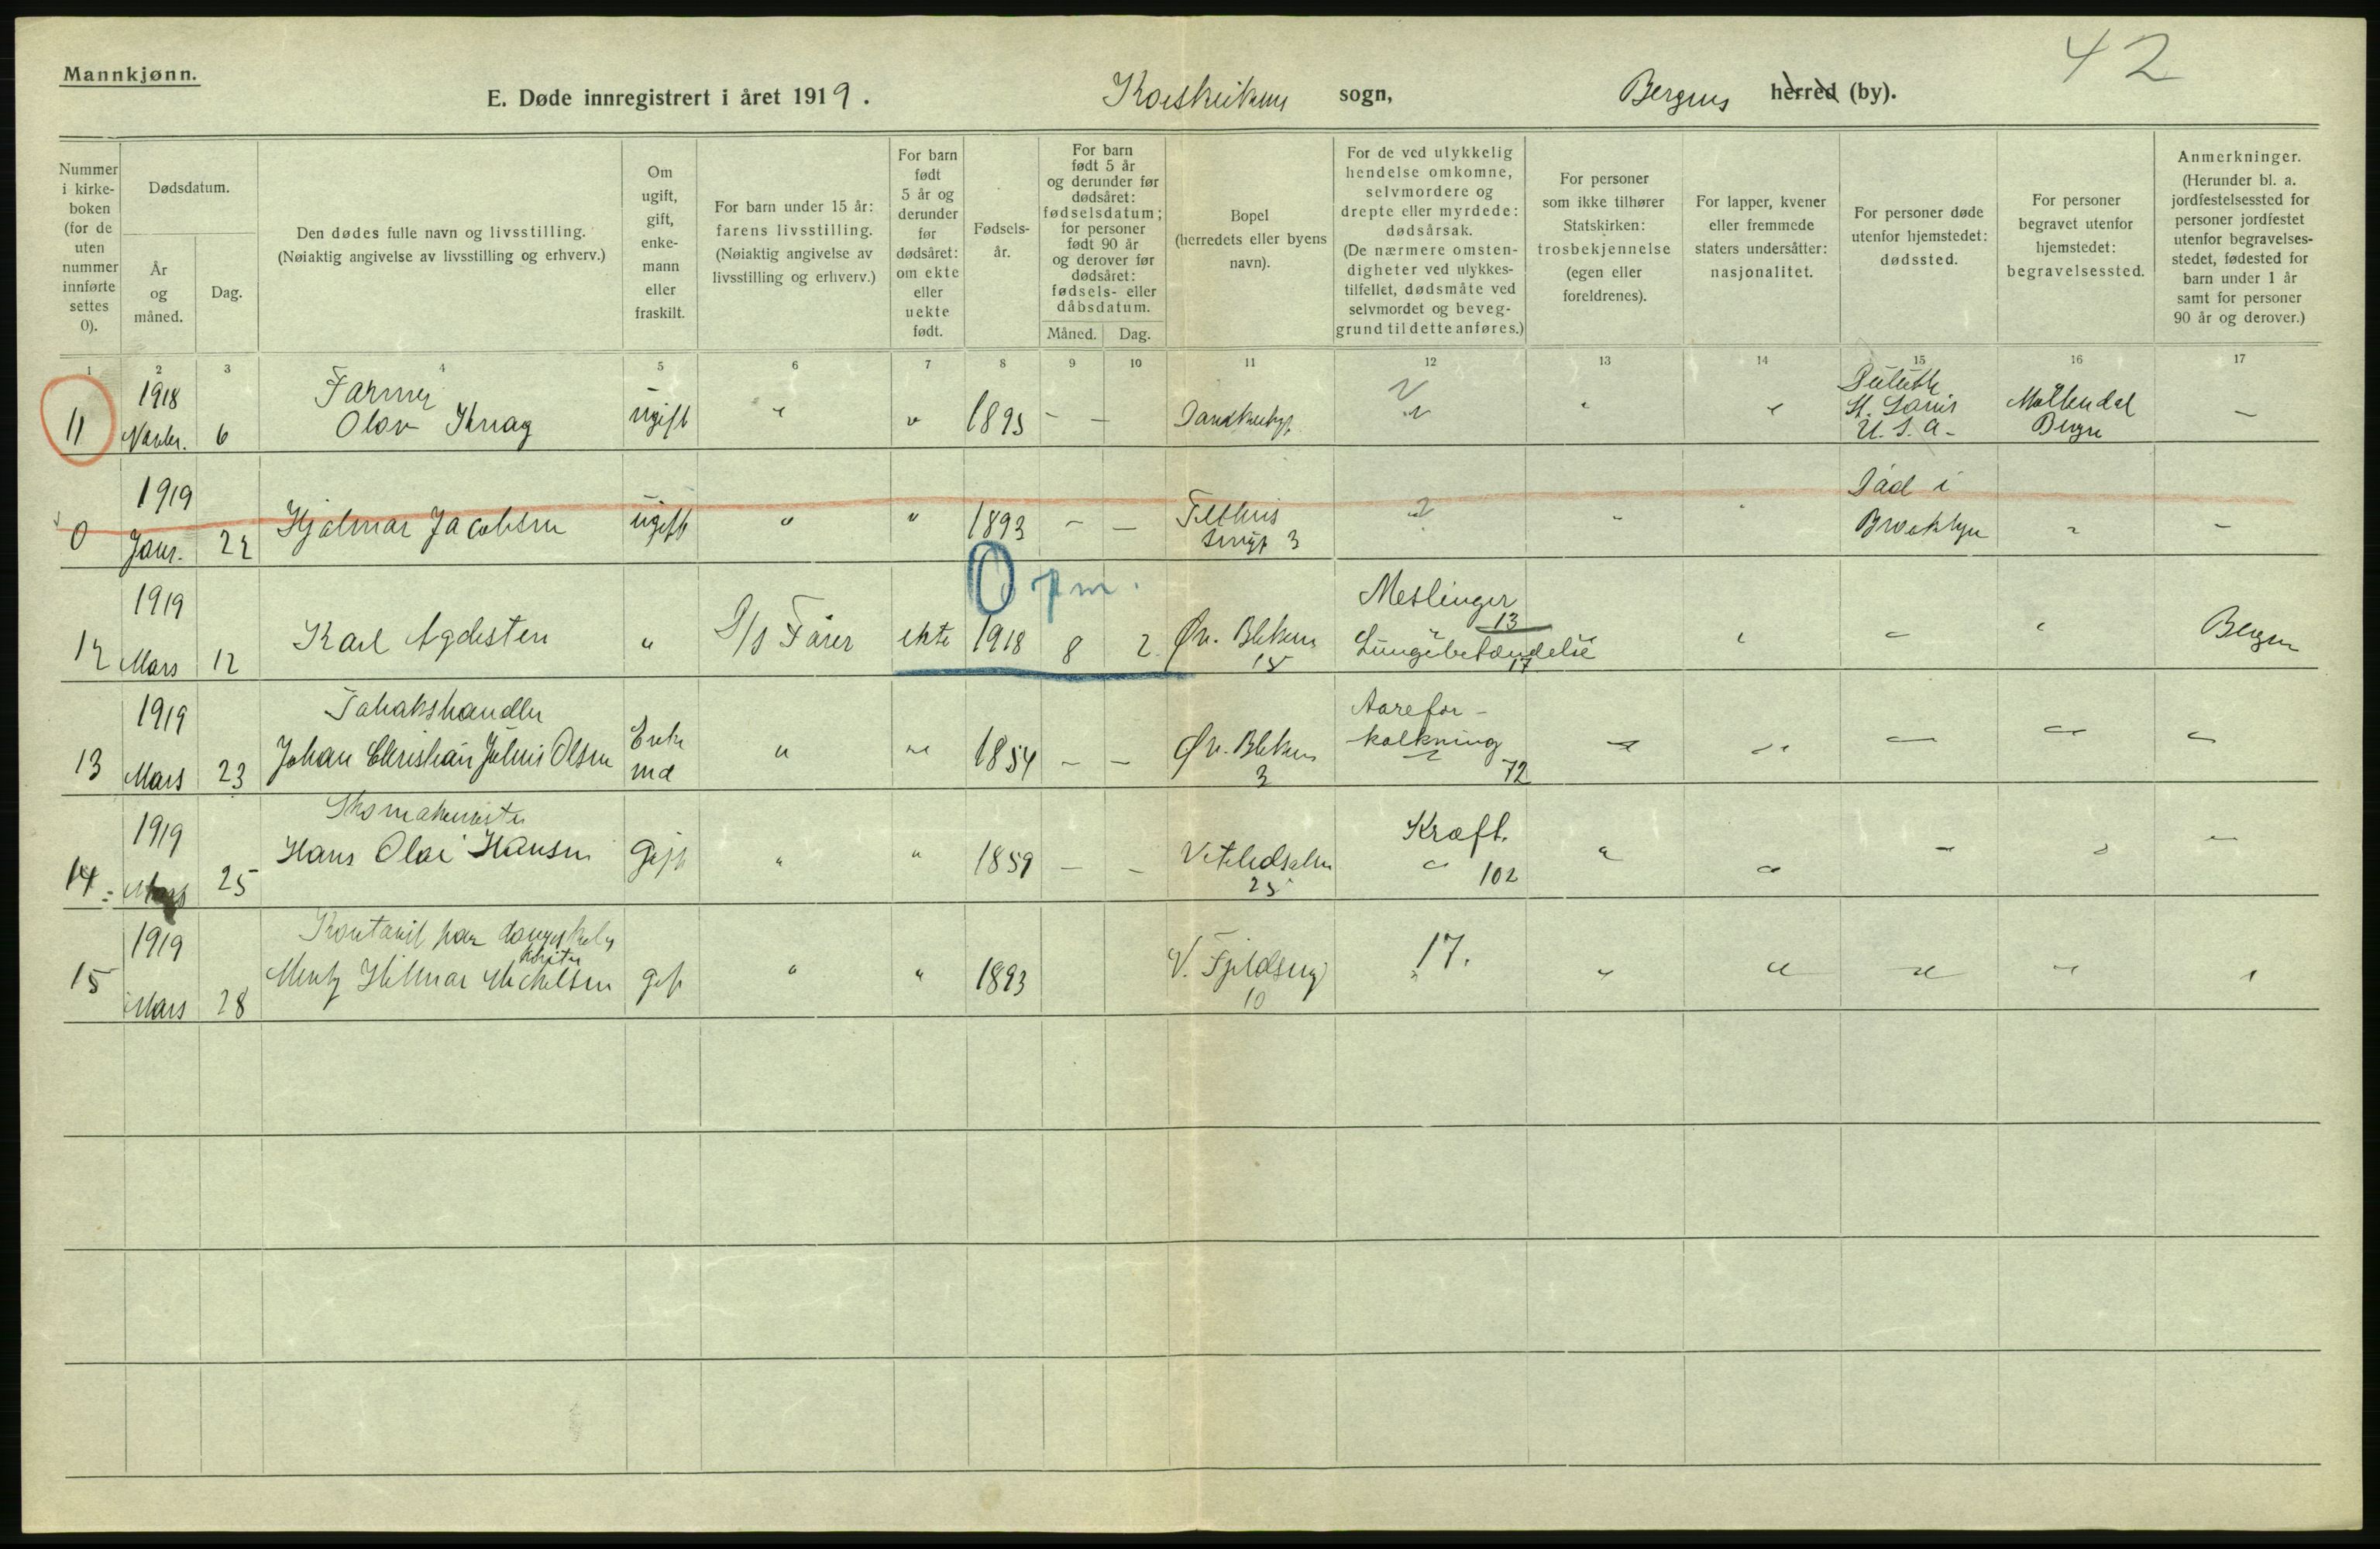 42
Mannkjønn.
E. Døde innregistrert i året 1919. Korskirkens sogn, Bergens herred (by).
Nummer i kirkeboken (for de uten nummer innførte settes 0).
Dødsdatum.
År og måned.
Dag.
Den dødes fulle navn og livsstilling.
(Nøiaktig angivelse av livsstilling og erhverv.)
Om ugift, gift, enkemann eller fraskilt.
For barn under 15 år: farens livsstilling.
(Nøiaktig angivelse av livsstilling og erhverv.)
For barn født 5 år og derunder før dødsåret: om ekte eller uekte født.
Fødselsår.
For barn født 5 år og derunder før dødsåret: fødselsdatum; for personer født 90 år og derover før dødsåret: fødsels- eller dåbsdatum.
Måned.
Dag.
Bopel
(herredets eller byens navn).
For de ved ulykkelig hendelse omkomne, selvmordere og drepte eller myrdede: dødsårsak.
(De nærmere omstendigheter ved ulykkestilfellet, dødsmåte ved selvmordet og beveggrund til dette anføres.)
For personer som ikke tilhører Statskirken: trosbekjennelse
(egen eller foreldrenes).
For lapper, kvener eller fremmede staters undersåtter: nasjonalitet.
For personer døde utenfor hjemstedet: dødssted.
For personer begravet utenfor hjemstedet: begravelsessted.
Anmerkninger.
(Herunder bl. a. jordfestelsessted for personer jordfestet utenfor begravelsesstedet, fødested for barn under 1 år samt for personer 90 år og derover.)
1 2 3 4 5 6 7 8 9 10 11 12 13 14 15 16 17
1918 Farmer Duluth
11 Novbr. 6 Olav Knag ugift " " 1895 - - " " St. Louis Møllendal -
U.S.A. Bergen
1919 Død i
0 Janr. 22 Hjalmar Jacobsen ugift " " 1893 - - Brooklyn " -
3
0 pm.
1919 Meslinger
13
12 Mars 12 Karl Agdesten " S/s Fører ekte 1918 8 2 Øv. Blekevn Lungebetændelse " - " Bergen
15 17
1919 Tobakshandler Aarefor-
13 Mars 23 Johan Christian Julius Olsen Enke " " 1854 - - Øv. Blekevn kalkning
md 3 72
1919 Skomakermester Kræft.
14 Mars 25 Hans Olai Hansen gift " " 1859 - - " 102
25
1919
15 Mars 28 Mentz Hilmar Michelsen gift " " 1893 17.
10